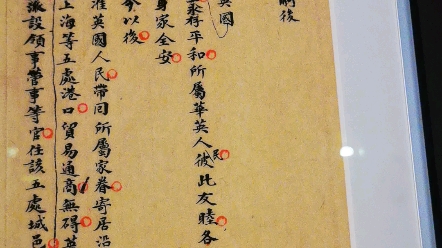 嗣後
英國
永存平和所屬華英人民彼此友睦各
身家全安
今以後
准英國人民帶同所屬家眷寄居沿
上海等五處港口貿易通商無礙英
派設領事管事等官住該五處城邑